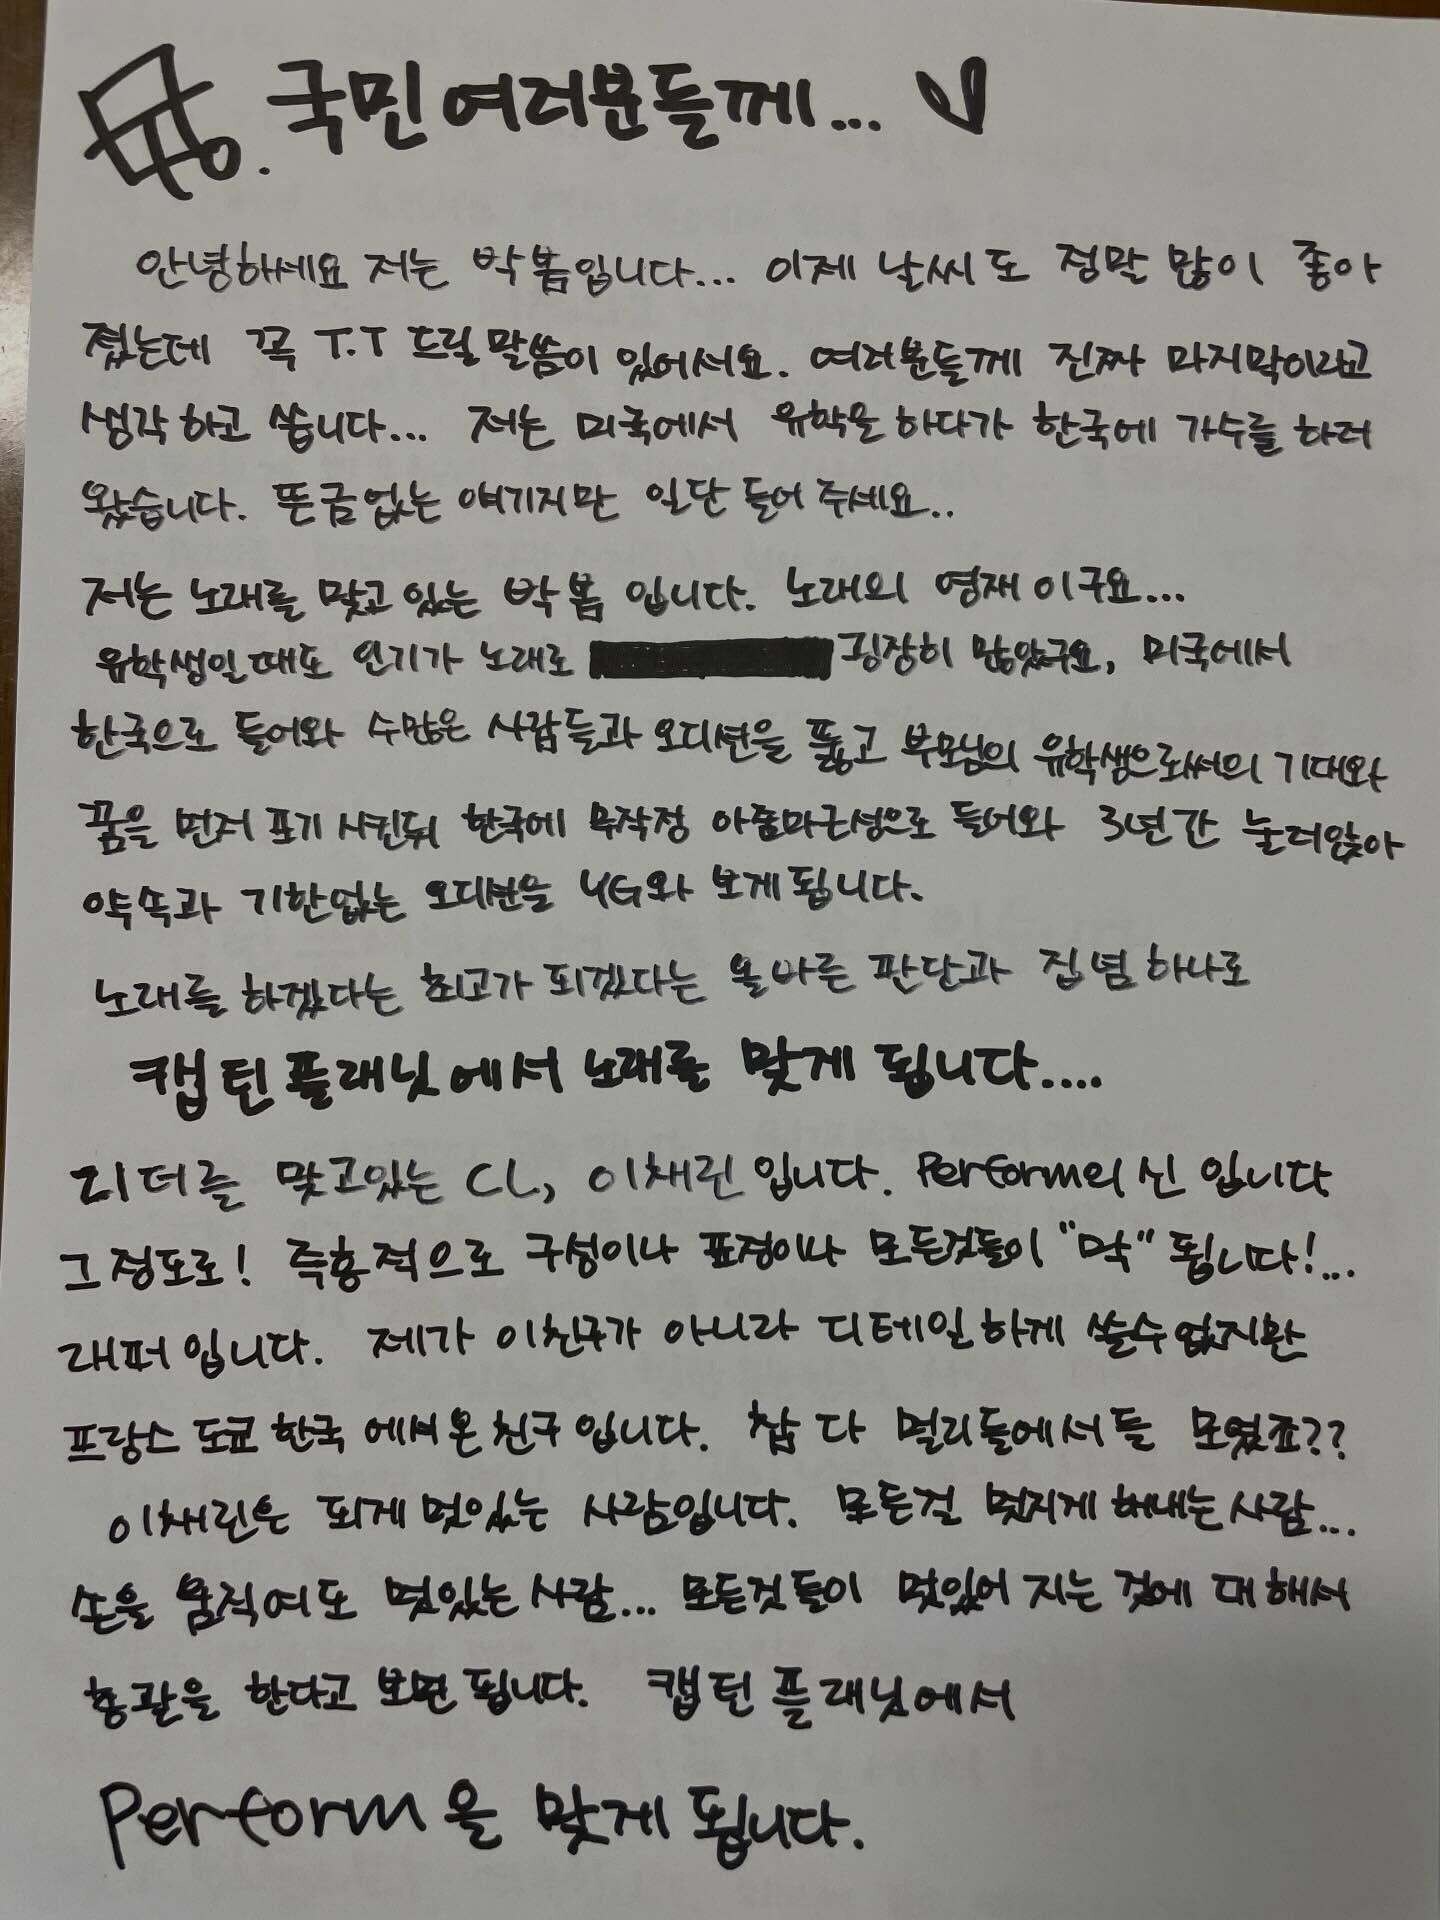 국민여러분들께...
안녕하세요 저는 박봄입니다... 이제 날씨도 정말 많이 좋아
졌는데 꼭 T.T 드릴말씀이 있어서요. 여러분들께 진짜 마지막이라고
생각하고 씁니다... 저는 미국에서 유학을하다가 한국에 가수를 하러
왔습니다. 뜬금없는 얘기지만 일단 들어 주세요..
저는 노래를 맞고 있는 박봄 입니다. 노래의 영재 이구요...
유학생일때도 인기가 노래로 굉장히 많았구요, 미국에서
한국으로 들어와 수많은 사람들과 오디션을 뚫고 부모님의 유학생으로써의 기대와
꿈을 먼저 포기 시킨뒤 한국에 무작정 아줌마근성으로 들어와 3년간 눌러앉아
약속과 기한없는 오디션을 YG와 보게됩니다.
노래를 하겠다는 최고가 되겠다는 올바른 판단과 집념 하나로
캡틴플래닛에서 노래를 맞게 됩니다....
리더를 맞고있는 CL, 이채린 입니다. Perform의 신 입니다
그정도로! 즉흥적으로 구성이나 표정이나 모든것들이 "막" 됩니다!...
래퍼입니다. 제가 이친구가 아니라 디테일하게 쓸수없지만
프랑스 도쿄 한국 에서온친구입니다. 참 다 멀리들에서들 모였죠??
이채린은 되게 멋있는 사람입니다. 모든걸 멋지게 해내는사람...
손을 움직여도 멋있는사람... 모든것들이 멋있어 지는 것에 대해서
총괄을 한다고 보면 됩니다. 캡틴 플래닛에서
Perform을 맞게 됩니다.